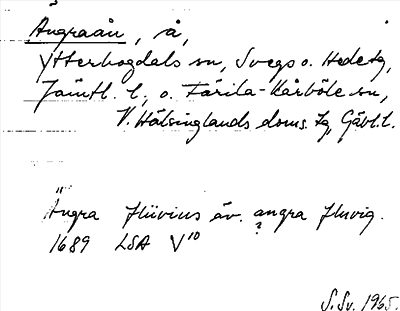 Ängraån, å,
Ytterhogdals sn, Svegs o. Hede tg,
Jämtl. l., o. Färila-Kårböle sn,
V. Hälsinglands doms. tg, Gävl. l.
Ängra fluvius äv. angra fluvig.
?
1689 LSA V10
S. Sv. 1965.